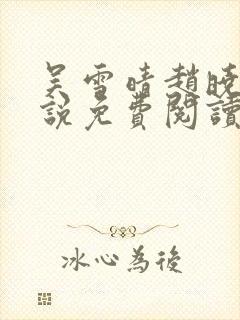 吴雪晴趙晓
說免費閱讀
冰心為後